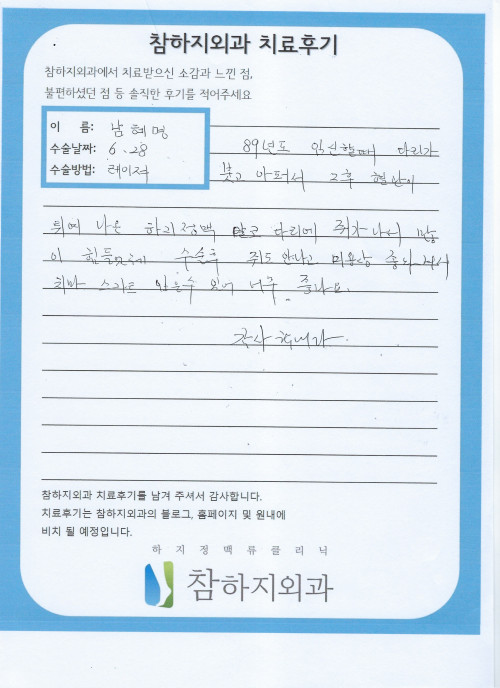 참하지외과 치료후기
참하지외과에서 치료받으신 소감과 느낀 점,
불편하셨던 점 등 솔직한 후기를 적어주세요
이 름: 남혜명
수술날짜: 6.28
수술방법: 레이저
89년도 임신할때 다리가
붓고 아퍼서 그후 혈관이
튀여 나온 하지정맥 말로 다리에 쥐가 나서 많
이 힘들었는데 수술후 쥐도 안나고 미용상 좋
치마 스커트 입을수 있어 너무 좋네요.
감사합니다.
참하지외과 치료후기를 남겨 주셔서 감사합니다.
치료후기는 참하지외과의 블로그, 홈페이지 및 원내에
비치 될 예정입니다.
하지정맥류클리닉
참하지외과